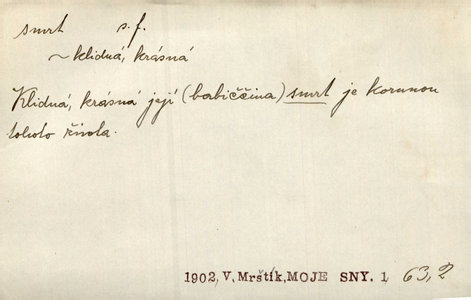 smrt s. f.
~ klidná, krásná
Klidná, krásná její (babiččina) smrt je korunou
tohoto života.
1902, V. Mrštík, MOJE SNY. 1, 63,2